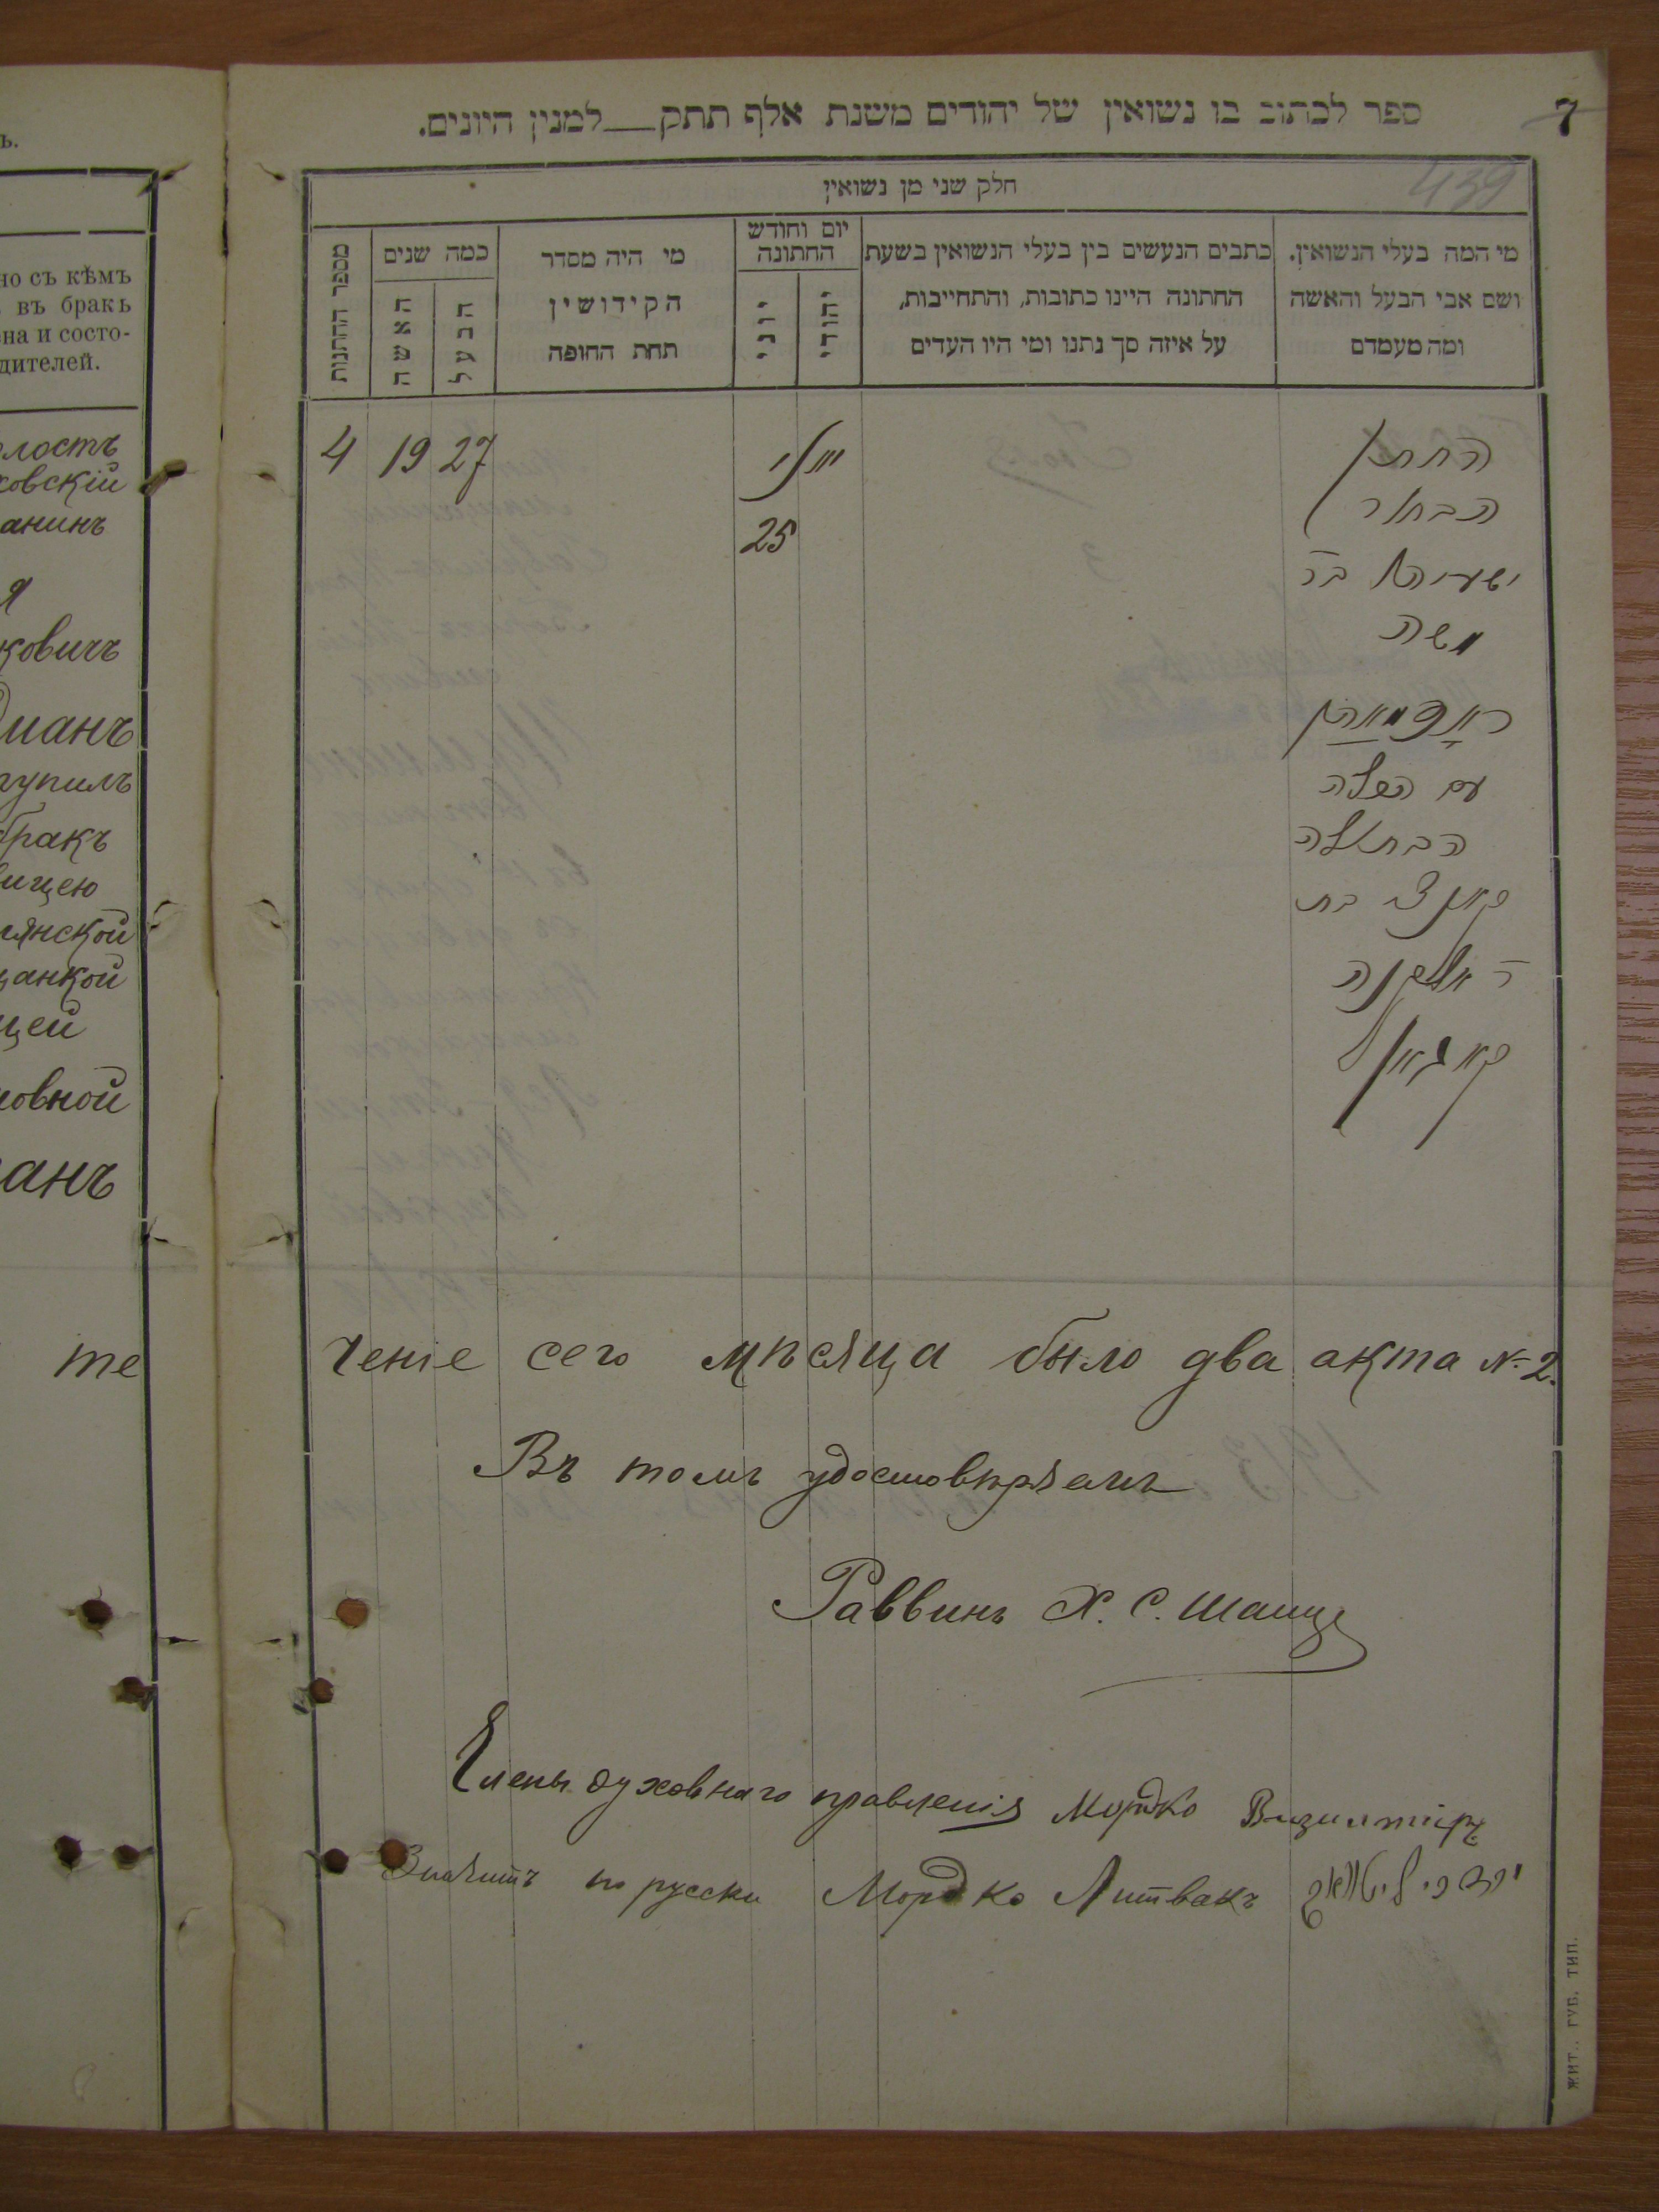 ъ.
но съ кѣмъ
въ бракъ
ена и состо-
дителей.
лость
ковскій
анинъ
я
ковичъ
манъ
тупилъ
бракъ
вицею
янской
щанкой
щей
новной
анъ
7
ספר לכתוב בו נשואין של יהודים משנת אלף תתק__למנין היונים.
439
חלק שני מן נשואין
מי המה בעלי הנשואין.
ושם אבי הבעל והאשה
ומה מעמדם
כתבים הנעשים בין בעלי הנשואין בשעת
החתונה היינו כתובות, והתחייבות,
על איזה סך נתנו ומי היו העדים
יום וחודש
החתונה
יהודי
יוני
מי היה מסדר
הקידושין
תחת החופה
כמה שנים
הבעל
האשה
מספר החתנות
החתן
הבחור
ישעיהו בר
משה
עם הכלה
הבתולה
בת
ר אלקנה
יולי
25
27
19
4
те чение сего мѣсяца было два акта №-2.
Въ томъ удостовѣряемъ
Раввинъ Х. С.
Члены духовнаго правленія Мордко
Значитъ по русски Мордко Литвакъ
ЖИТ., ГУБ. ТИП.